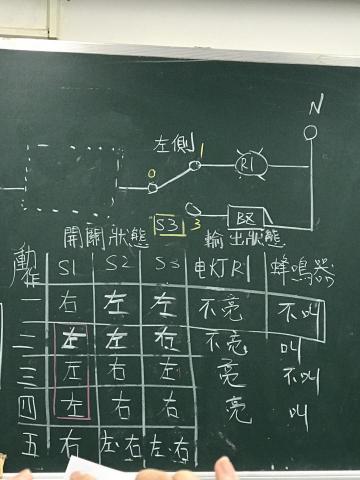 N
左側
1
0
R1
S3
3
BZ
開關狀態 輸出狀態
動作 S1 S2 S3 电灯R1 蜂鳴器
一 右 左 左 不亮 不叫
二 左 左 右 不亮 叫
三 左 右 左 亮 不叫
四 左 右 右 亮 叫
五 右 左.右 左.右